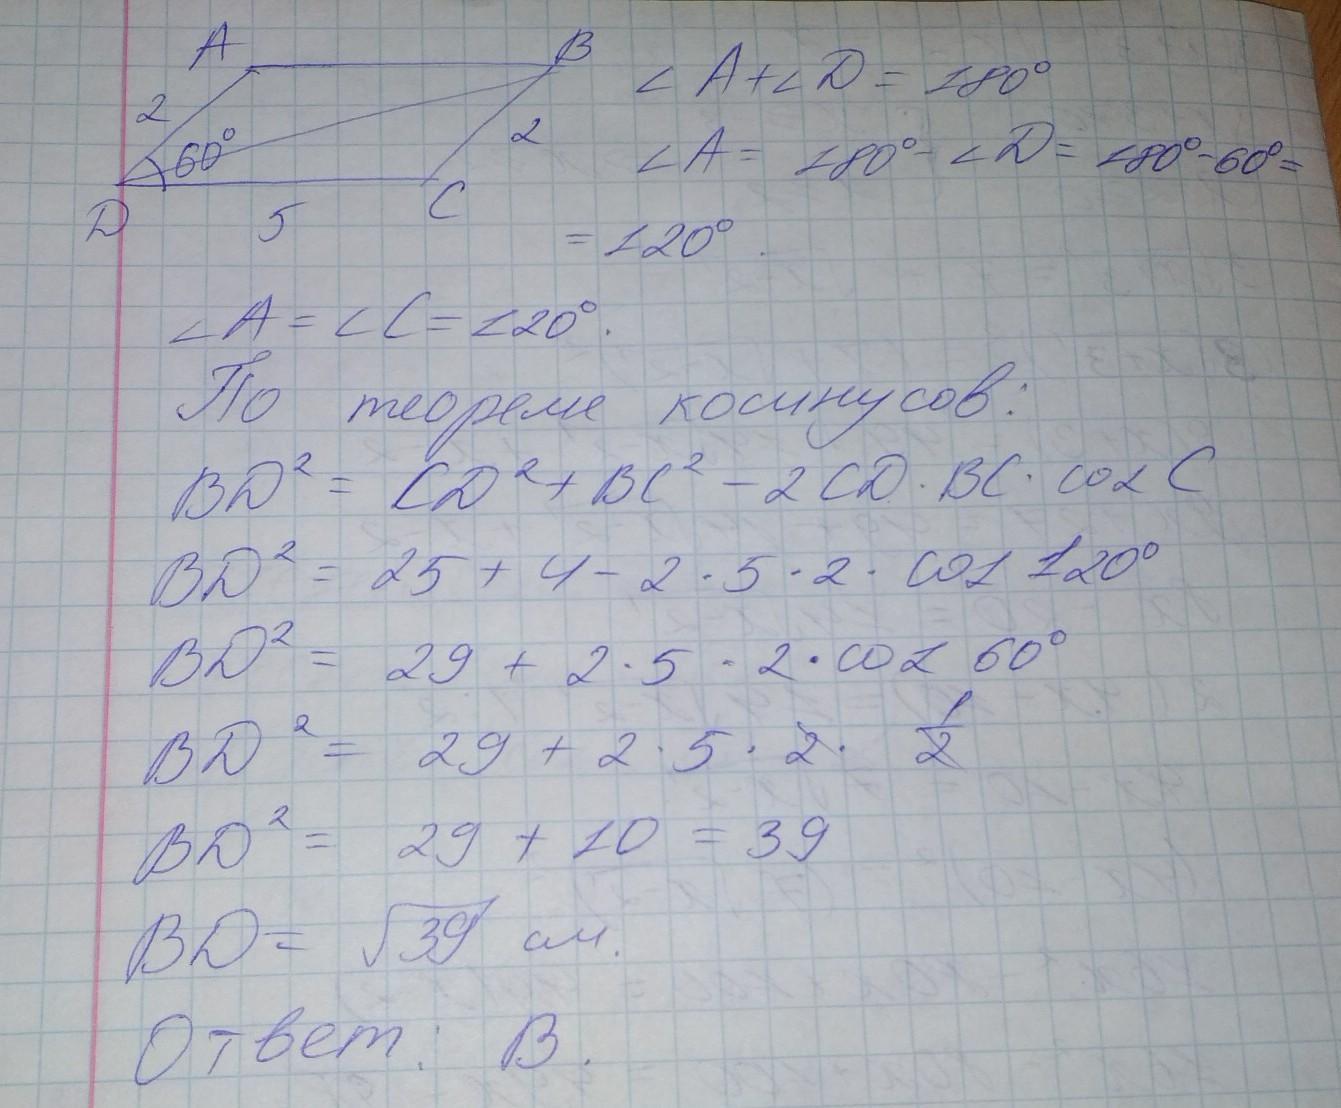 A B
2 60° 2
D 5 C
∠A+∠D = 180°
∠A = 180° - ∠D = 180° - 60° =
= 120°.
∠A = ∠C = 120°.
По теореме косинусов:
BD² = CD² + BC² - 2CD · BC · cos C
BD² = 25 + 4 - 2 · 5 · 2 · cos 120°
BD² = 29 + 2 · 5 · 2 · cos 60°
BD² = 29 + 2 · 5 · 2 · 1/2
BD² = 29 + 10 = 39
BD = √39 см.
Ответ: В.